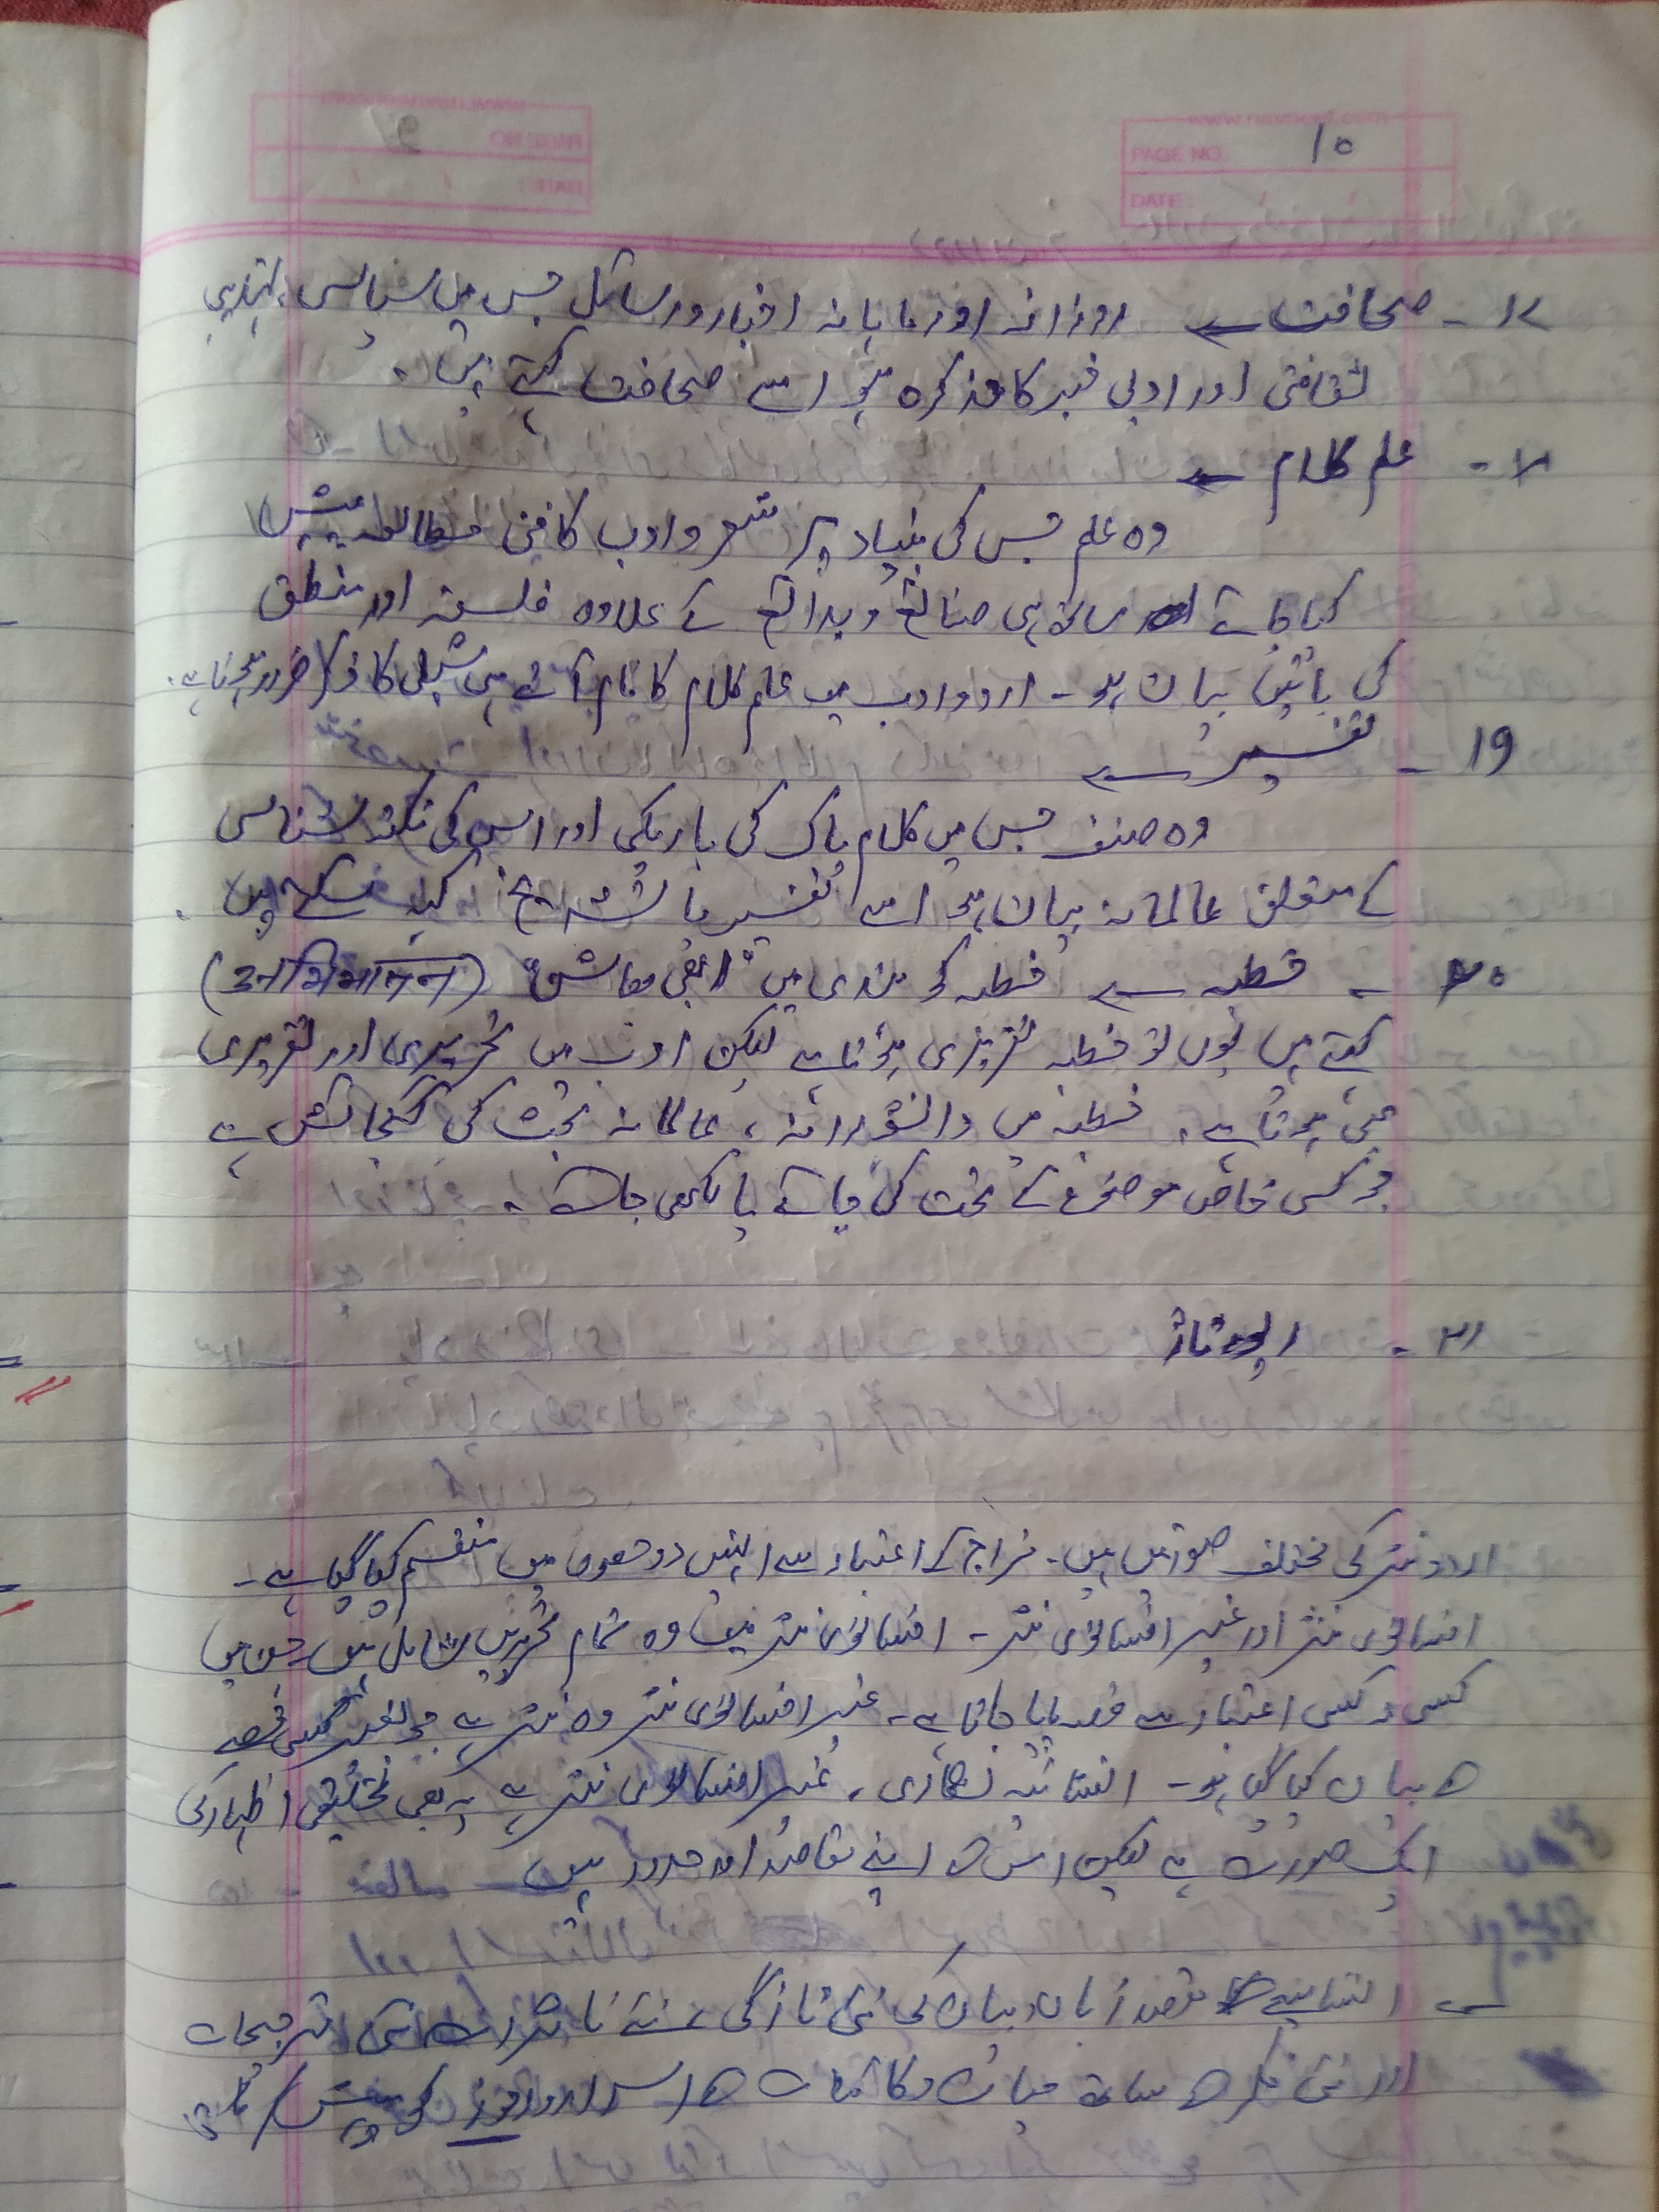 PAGE NO. 10
DATE: / /
۱۷۔ صحافت ← روزانہ اور ماہانہ اخبار ورسائل جس میں سیاسی، تہذیبی
ثقافتی اور ادبی خبر کا مذکرہ ہو اسے صحافت کہتے ہیں۔
۱۸۔ علم کلام ←
وہ علم جس کی بنیاد پر شعر و ادب کا فنی مطالعہ پیش
کیا جائے ساتھ ہی صنائع و بدائع کے علاوہ فلسفہ اور منطق
کی باتیں بیان ہو۔ اردو ادب میں علم کلام کا نام آتے ہی شبلی کا ذکر ضرور ہوتا ہے۔
19۔ تفسیر ←
وہ صنف جس میں کلام پاک کی باریکی اور اس کی نکتہ شناسی
کے متعلق عالمانہ بیان ہو اسے تفسیر یا تشریح کہہ سکتے ہیں۔
۲۰۔ خطبہ ← خطبہ کو ہندی میں "ابھی بھاشن" (अभिभाषन)
کہتے ہیں یوں تو خطبہ تقریری ہوتا ہے لیکن ادب میں تحریری اور تقریری
بھی ہوتا ہے۔ خطبہ میں دانشورانہ، عالمانہ بحث کی گنجائش ہے
جو کسی خاص موضوع کے تحت کی جائے یا لکھی جائے۔
۲۱۔ رپورتاژ
اردو نثر کی مختلف صورتیں ہیں۔ مزاج کے اعتبار سے انہیں دو حصوں میں منقسم کیا گیا ہے۔
افسانوی نثر اور غیر افسانوی نثر۔ افسانوی نثر میں وہ تمام تحریریں شامل ہیں جن میں
کسی نہ کسی اعتبار سے قصہ پایا جاتا ہے۔ غیر افسانوی نثر وہ نثر ہے جو بغیر کسی قصے
کے بیان کی گئی ہو۔ انشائیہ نگاری، غیر افسانوی نثر ہے یہ بھی تخلیقی اظہار کی
ایک صورت ہے لیکن اس کے اپنے تقاضے اور حدود ہیں۔
← انشائیے کا مقصد زبان و بیان کی نئی تازگی نئے تاثرات نئی ترجیحات
اور نئی فکر کے ساتھ حیات و کائنات کے اسرار و رموز کو پیش کرنا